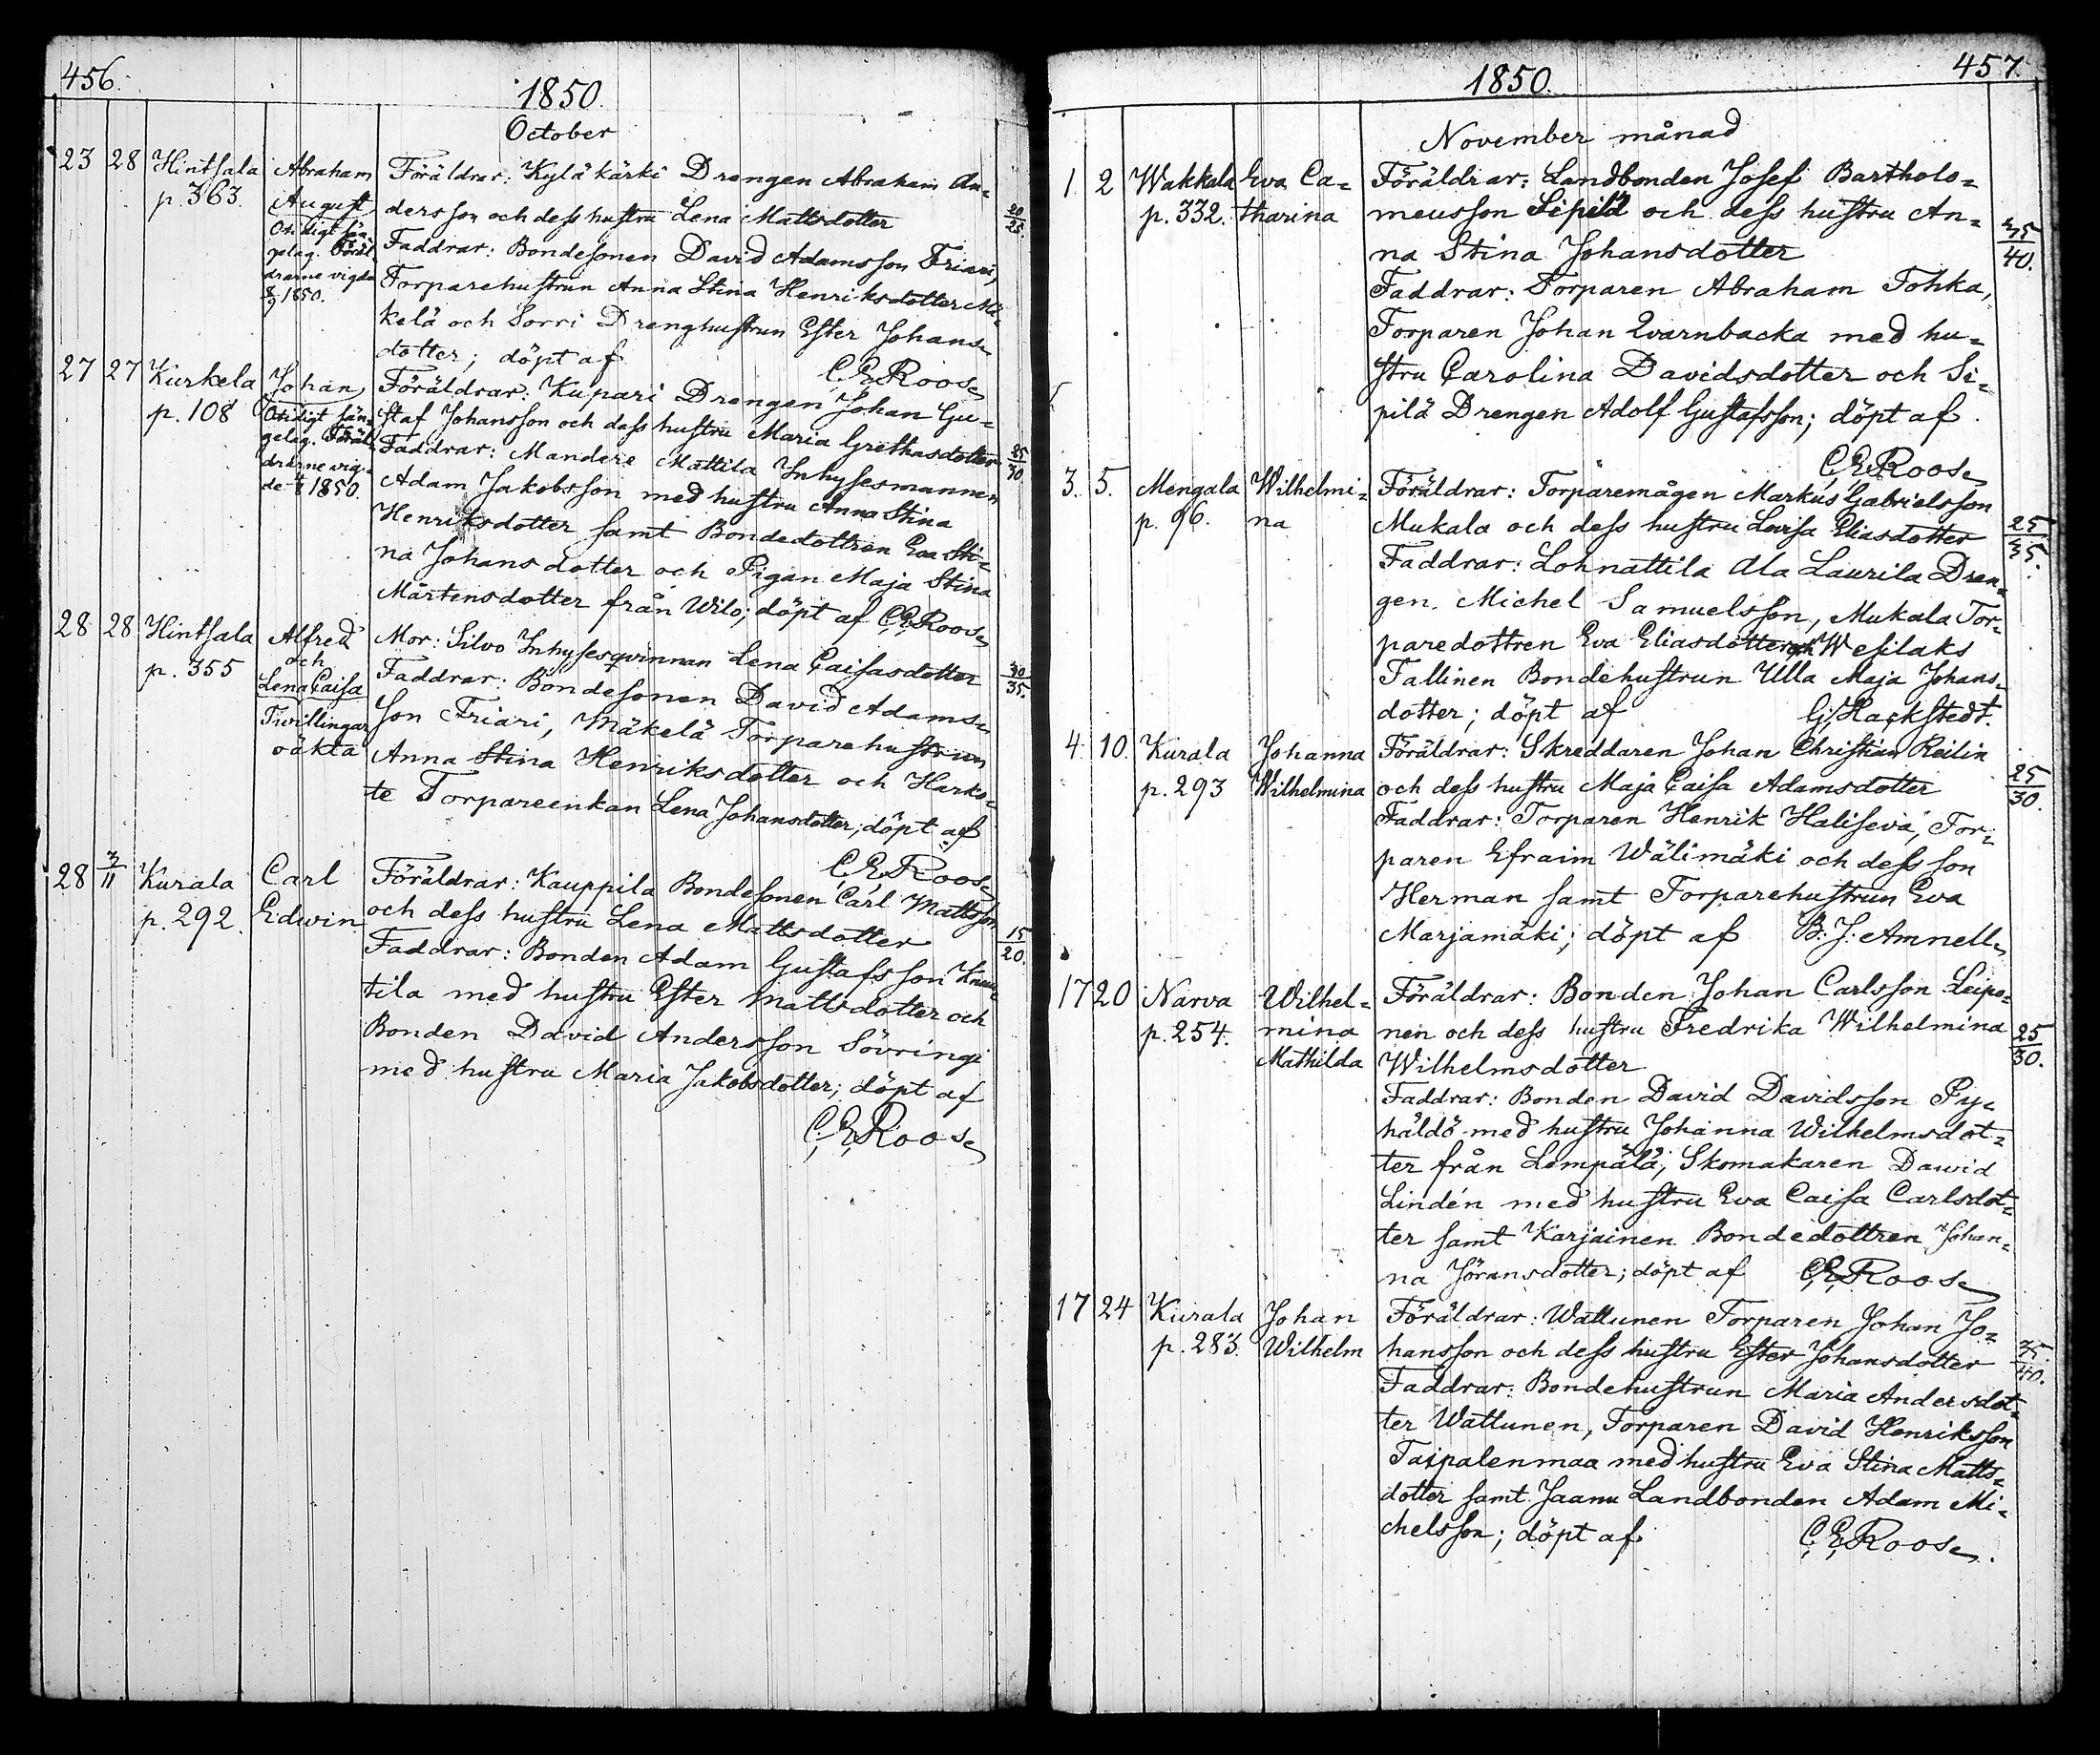 456.
1850.
October
23 28 Hintsala Abraham Föräldrar: Kyläkärki Drengen Abraham An=
p. 363. August dersson och dess hustru Lena Mattsdotter 20/25.
Otidigt sän=
gelag. Föräl=
drarne vigda
1850.
Faddrar: Bondesonen David Adamsson Friari,
Torparehustrun Anna Stina Henriksdotter Mä=
kelä och Sorri Drenghustrun Ester Johans=
dotter; döpt af C. E. Roos
27 27 Kurkela Johan Föräldrar: Kupari Drengen Johan Gu=
p. 108 staf Johansson och dess hustru Maria Grethasdotter 25/30.
Otidigt sän=
gelag. Föräl=
drarne vig=
de 1850.
Faddrar: Mandere Mattila Inhysesmannen
Adam Jakobsson med hustru Anna Stina
Henriksdotter samt Bondedottren Eva Sti=
na Johansdotter och Pigan Maja Stina
Mårtensdotter från Wilo; döpt af C. E. Roos
28 28 Hintsala Alfred Mor: Silvo Inhysesqvinnan Lena Caisasdotter 30/35.
p. 355 och
Lena Caisa
Tvillingar
oäkta
Faddrar: Bondesonen David Adams=
son Friari, Mäkelä Torparehustrun
Anna Stina Henriksdotter och Harko=
te Torpareenkan Lena Johansdotter; döpt af
C. E. Roos
28 3/11 Kurala Carl Föräldrar: Kauppila Bondesonen Carl Mattsson
p. 292. Edwin och dess hustru Lena Mattsdotter 15/20.
Faddrar: Bonden Adam Gustafsson Knuu=
tila med hustru Ester Mattsdotter och
Bonden David Andersson Sövringi
med hustru Maria Jakobsdotter; döpt af
C. E. Roos
457.
1850.
November månad
1. 2 Wakkala Eva Ca= Föräldrar: Landbonden Josef Bartholo=
p. 332. tharina meusson Sipilä och dess hustru An= 35/40.
na Stina Johansdotter
Faddrar: Torparen Abraham Tohka,
Torparen Johan Qvarnbacka med hu=
stru Carolina Davidsdotter och Si=
pilä Drengen Adolf Gustafsson; döpt af
C. E. Roos
3. 5. Mengala Wilhelmi= Föräldrar: Torparemågen Markus Gabrielsson
p. 96. na Mukala och dess hustru Lovisa Eliasdotter 25/35.
Faddrar: Lohnattila Ala Laurila Dren=
gen Michel Samuelsson, Mukala Tor=
paredottren Eva Eliasdotter och Wesilaks
Tallinen Bondehustrun Ulla Maja Johans=
dotter; döpt af G. Hackstedt.
4. 10. Kurala Johanna Föräldrar: Skreddaren Johan Christian Reilin
p. 293 Wilhelmina och dess hustru Maja Caisa Adamsdotter 25/30.
Faddrar: Torparen Henrik Haliseva, Tor=
paren Efraim Wälimäki och dess son
Herman samt Torparehustrun Eva
Marjamäki; döpt af B. J. Amnell
17 20 Narva Wilhel= Föräldrar: Bonden Johan Carlsson Leipo=
p. 254. mina nen och dess hustru Fredrika Wilhelmina 25/30.
Mathilda Wilhelmsdotter
Faddrar: Bonden David Davidsson Py=
häldö med hustru Johanna Wilhelmsdot=
ter från Lempälä, Skomakaren David
Lindén med hustru Eva Caisa Carlsdot=
ter samt Karjainen Bondedottren Johan=
na Göransdotter; döpt af C. E. Roos
17 24 Kurala Johan Föräldrar: Wattunen Torparen Johan Jo=
p. 283. Wilhelm hansson och dess hustru Ester Johansdotter 35/40.
Faddrar: Bondehustrun Maria Andersdot=
ter Wattunen, Torparen David Henriksson
Taipalenmaa med hustru Eva Stina Matts=
dotter samt Jaanu Landbonden Adam Mi=
chelsson; döpt af C. E. Roos.